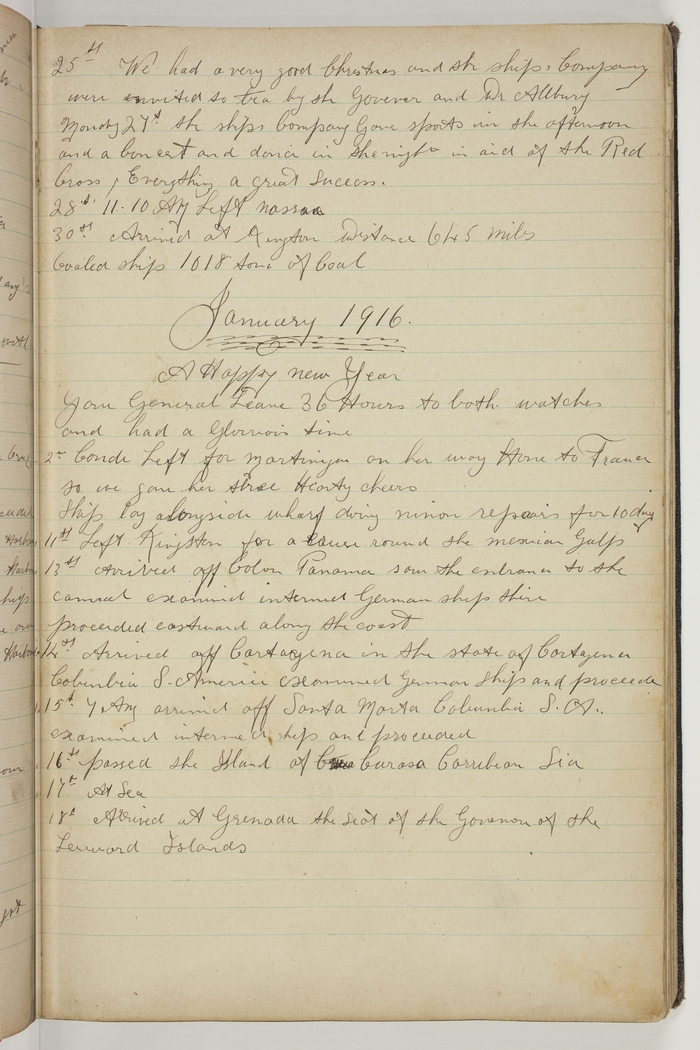 25th We had a very good Christmas and the ships Company
were invited to tea by the Govener and Dr Allbury
Monday 27th the ships Company Gave sports in the afternoon
and a Concert and dance in the night in aid of the Red
Cross, Everything a great Success.
28th 11.10 AM Left nassau
30th Arrived at Kington Distance 645 miles
Coaled ship 1018 tons of Coal
January 1916.
A Happy new Year
Gave General Leave 36 Hours to both watches
and had a Glorious time
2nd Conde Left for Martinique on her way Home to France
so we gave her three Hearty cheers
Ship lay alongside wharf doing minor repairs for 10 days
11th Left Kingston for a Cruise round the mexican Gulf
13th Arrived off Colon Panama saw the entrance to the
cannal examined interned German ships there
proceeded eastward along the coast
14th Arrived off Cartagena in the state of Cartagena
Columbia S. America examined German ships and proceeded
15th 7 AM arrived off Santa Marta Columbia S.A.
examined interned ships and proceeded
16th passed the Island of Curasa Carribean Sia
17th At Sea
18th Arrived at Grenada the seat of the Govenor of the
Leeward Islands